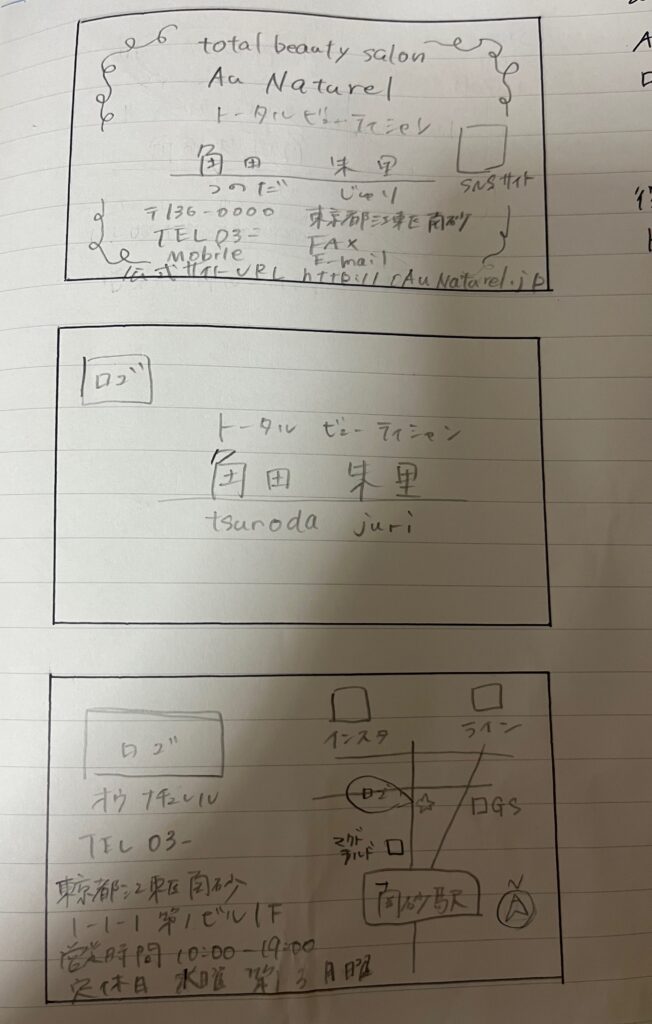 total beauty salon
Au Naturel
トータルビューティシャン
角田 朱里
つのだ じゅり
SNSサイト
〒136-0000 東京都江東区南砂
TEL 03- FAX
Mobile E-mail
公式サイトURL http://rAuNaturel.jp
ロゴ
トータル ビューティシャン
角田 朱里
tsunoda juri
ロゴ
オウ ナチュレル
TEL 03-
東京都江東区南砂
1-1-1 第1ビル1F
営業時間 10:00-19:00
定休日 水曜 第1 3 月曜
インスタ
ライン
ロゴ
GS
マクド
ナルド
南砂駅
N
A